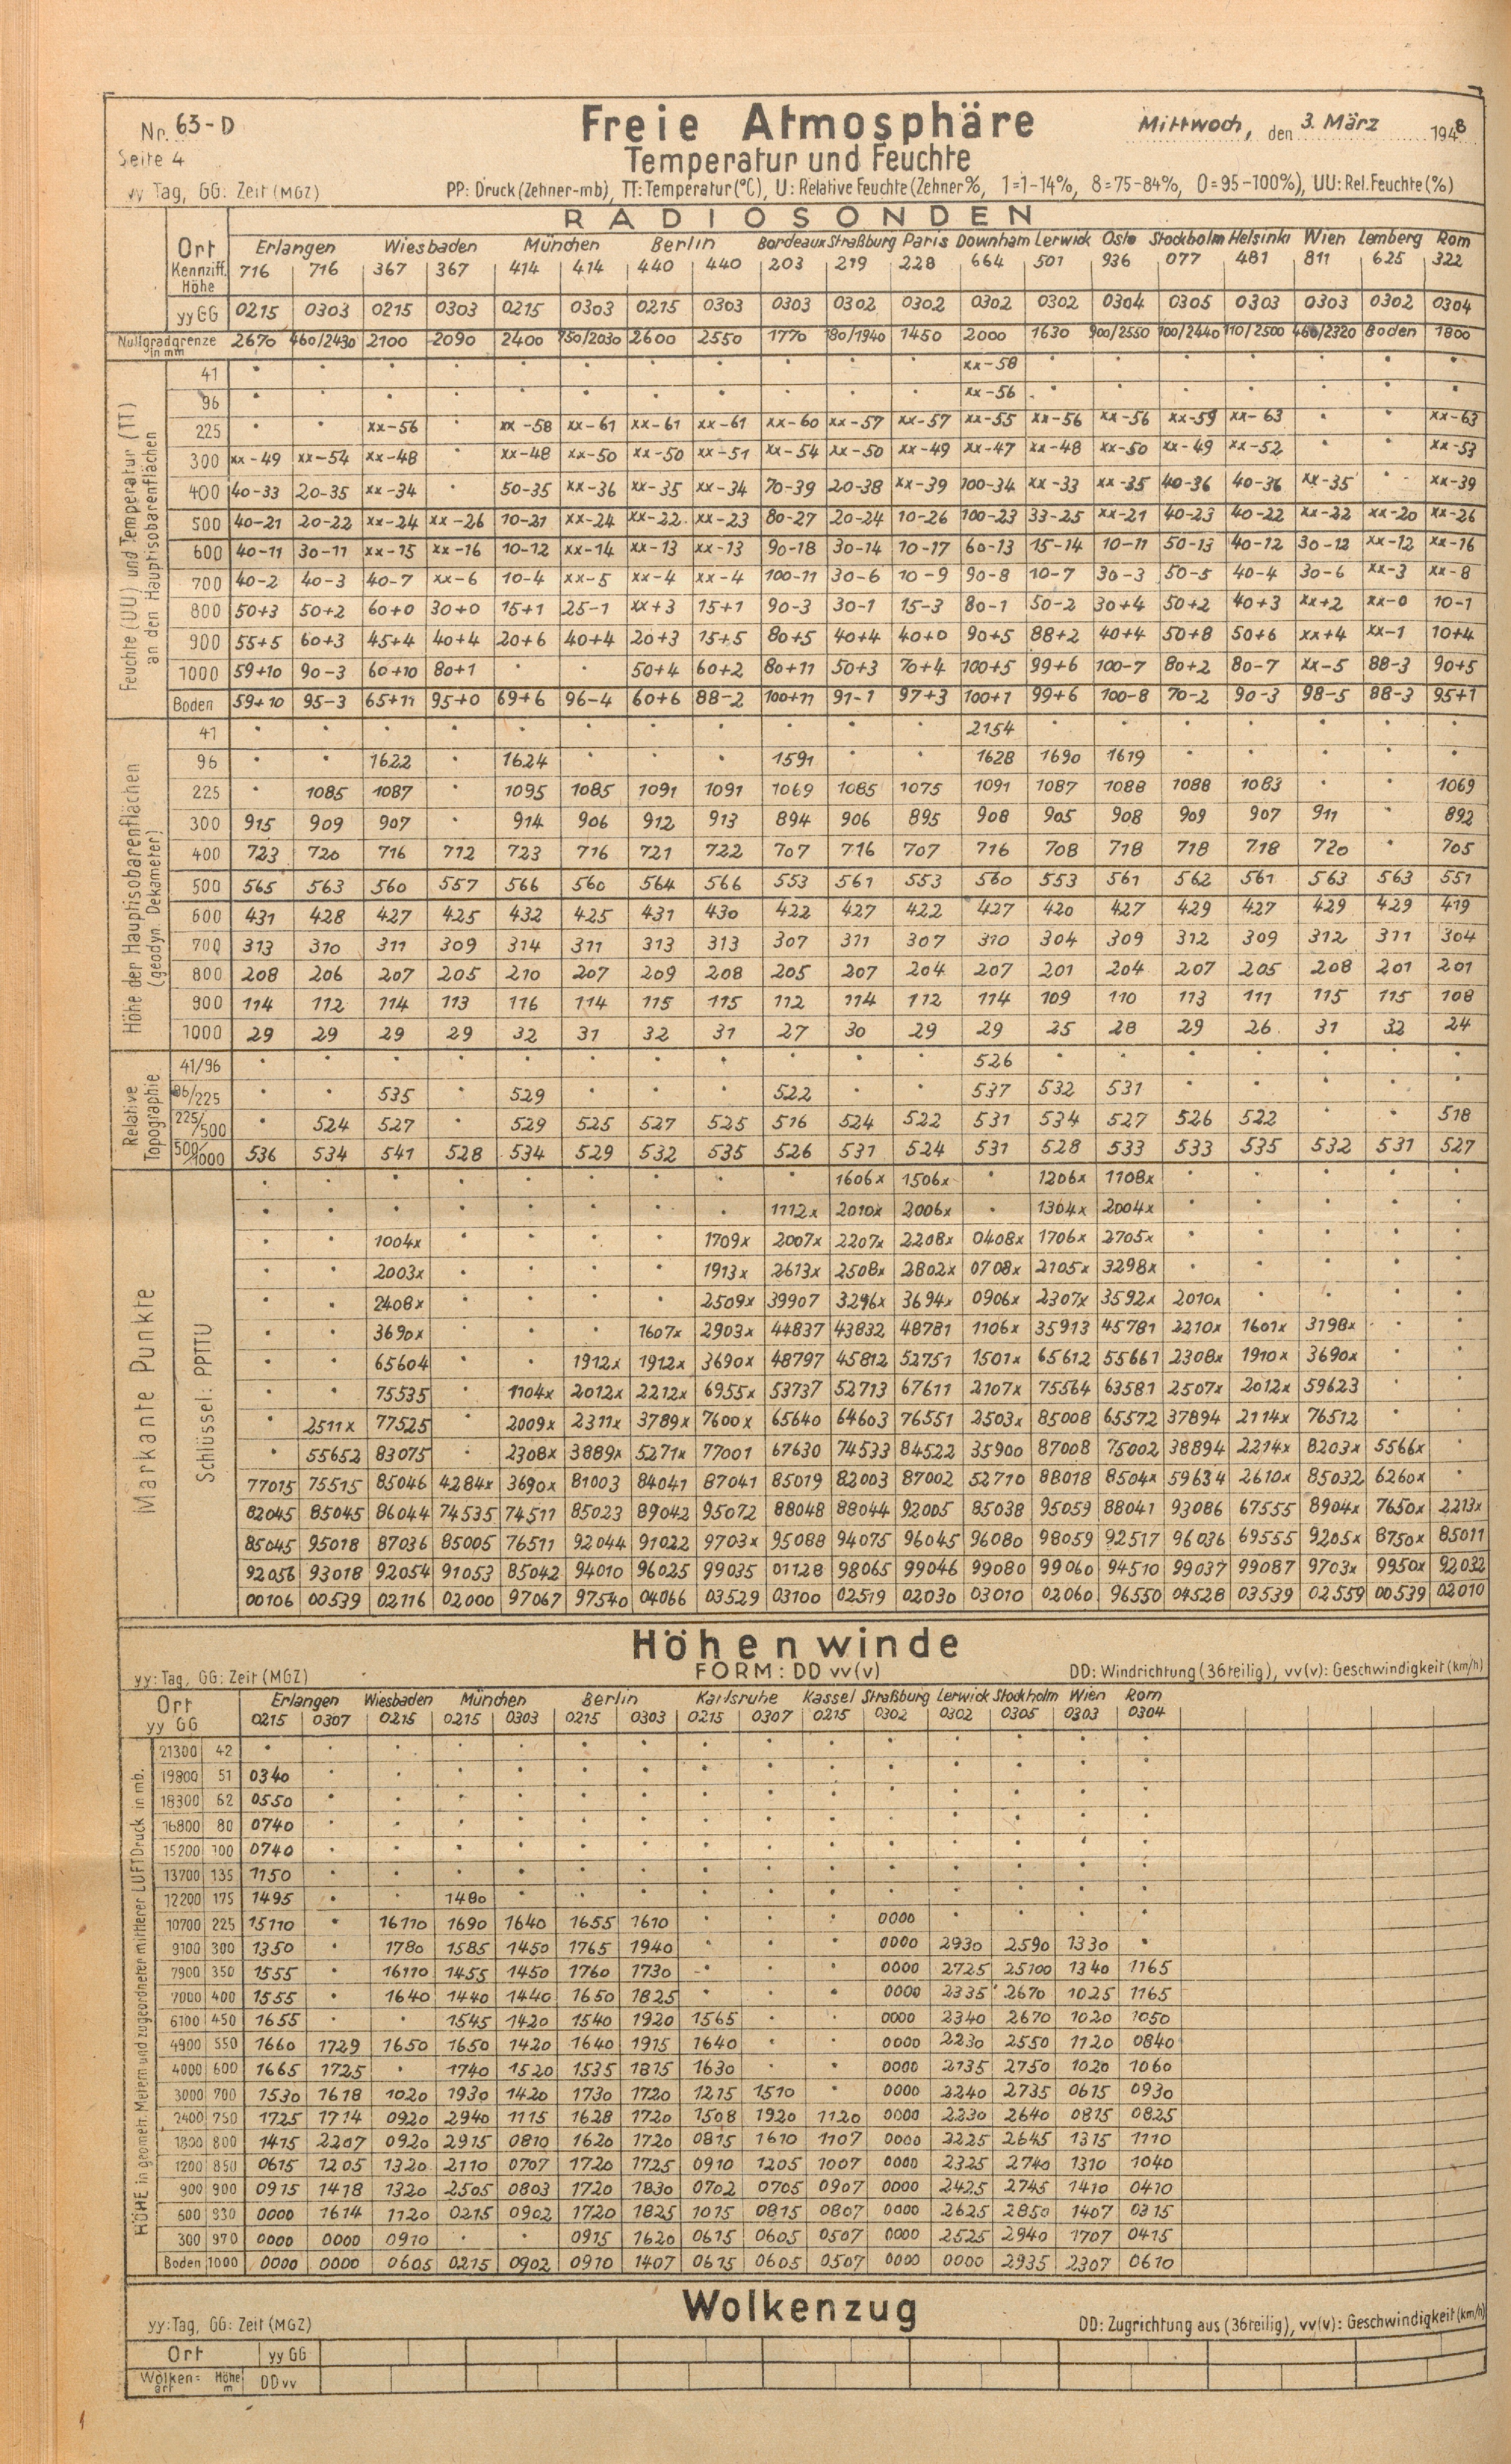 Nr. 63-D
Freie Atmosphäre
Mittwoch, den 3. März 1948
Seite 4
Temperatur und Feuchte
yy Tag, GG: Zeit (MGZ)
PP: Druck (Zehner-mb), TT: Temperatur (°C), U: Relative Feuchte (Zehner %, 1=1-14%, 8=75-84%, 0=95-100%), UU: Rel. Feuchte (%)
RADIOSONDEN
Ort Erlangen Wiesbaden München Berlin Bordeaux Straßburg Paris Downham Lerwick Oslo Stockholm Helsinki Wien Lemberg Rom
Kennziff. 716 716 367 367 414 414 440 440 203 219 228 664 501 936 077 481 811 625 322
Höhe
yy GG 0215 0303 0215 0303 0215 0303 0215 0303 0303 0302 0302 0302 0302 0304 0305 0303 0303 0302 0304
Nullgradgrenze in mm 2670 460/2430 2100 2090 2400 750/2030 2600 2550 1770 180/1940 1450 2000 1630 900/2550 100/2440 110/2500 460/2320 Boden 1800
Feuchte (UU) und Temperatur (TT) an den Hauptisobarenflächen
41 xx-58
96 xx-56
225 xx-56 xx-58 xx-61 xx-61 xx-61 xx-60 xx-57 xx-57 xx-55 xx-56 xx-56 xx-59 xx-63 xx-63
300 xx-49 xx-54 xx-48 xx-48 xx-50 xx-50 xx-51 xx-54 xx-50 xx-49 xx-47 xx-48 xx-50 xx-49 xx-52 xx-53
400 40-33 20-35 xx-34 50-35 xx-36 xx-35 xx-34 70-39 20-38 xx-39 100-34 xx-33 xx-35 40-36 40-36 xx-35 xx-39
500 40-21 20-22 xx-24 xx-26 10-21 xx-24 xx-22 xx-23 80-27 20-24 10-26 100-23 33-25 xx-21 40-23 40-22 xx-22 xx-20 xx-26
600 40-11 30-11 xx-15 xx-16 10-12 xx-14 xx-13 xx-13 90-18 30-14 10-17 60-13 15-14 10-11 50-13 40-12 30-12 xx-12 xx-16
700 40-2 40-3 40-7 xx-6 10-4 xx-5 xx-4 xx-4 100-11 30-6 10-9 90-8 10-7 30-3 50-5 40-4 30-6 xx-3 xx-8
800 50+3 50+2 60+0 30+0 15+1 25-1 xx+3 15+1 90-3 30-1 15-3 80-1 50-2 30+4 50+2 40+3 xx+2 xx-0 10-1
900 55+5 60+3 45+4 40+4 20+6 40+4 20+3 15+5 80+5 40+4 40+0 90+5 88+2 40+4 50+8 50+6 xx+4 xx-1 10+4
1000 59+10 90-3 60+10 80+1 50+4 60+2 80+11 50+3 70+4 100+5 99+6 100-7 80+2 80-7 xx-5 88-3 90+5
Boden 59+10 95-3 65+11 95+0 69+6 96-4 60+6 88-2 100+11 91-1 97+3 100+1 99+6 100-8 70-2 90-3 98-5 88-3 95+1
Höhe der Hauptisobarenflächen (geodyn. Dekameter)
41 2154
96 1622 1624 1591 1628 1690 1619
225 1085 1087 1095 1085 1091 1091 1069 1085 1075 1091 1087 1088 1088 1083 1069
300 915 909 907 914 906 912 913 894 906 895 908 905 908 909 907 911 892
400 723 720 716 712 723 716 721 722 707 716 707 716 708 718 718 718 720 705
500 565 563 560 557 566 560 564 566 553 561 553 560 553 561 562 561 563 563 551
600 431 428 427 425 432 425 431 430 422 427 422 427 420 427 429 427 429 429 419
700 313 310 311 309 314 311 313 313 307 311 307 310 304 309 312 309 312 311 304
800 208 206 207 205 210 207 209 208 205 207 204 207 201 204 207 205 208 201 201
900 114 112 114 113 116 114 115 115 112 114 112 114 109 110 113 111 115 115 108
1000 29 29 29 29 32 31 32 31 27 30 29 29 25 28 29 26 31 32 24
Relative Topographie
41/96 526
96/225 535 529 522 537 532 531
225/500 524 527 529 525 527 525 516 524 522 531 534 527 526 522 518
500/1000 536 534 541 528 534 529 532 535 526 531 524 531 528 533 533 535 532 531 527
Markante Punkte
Schlüssel: PPTTU
1606x 1506x 1206x 1108x
1112x 2010x 2006x 1304x 2004x
1004x 1709x 2007x 2207x 2208x 0408x 1706x 2705x
2003x 1913x 2613x 2508x 2802x 0708x 2105x 3298x
2408x 2509x 39907 3296x 3694x 0906x 2307x 3592x 2010x
3690x 1607x 2903x 44837 43832 48781 1106x 35913 45781 2210x 1601x 3198x
65604 1912x 1912x 3690x 48797 45812 52751 1501x 65612 55661 2308x 1910x 3690x
75535 1104x 2012x 2212x 6955x 53737 52713 67611 2107x 75564 63581 2507x 2012x 59623
2511x 77525 2009x 2311x 3789x 7600x 65640 64603 76551 2503x 85008 65572 37894 2114x 76512
55652 83075 2308x 3889x 5271x 77001 67630 74533 84522 35900 87008 75002 38894 2214x 8203x 5566x
77015 75515 85046 4284x 3690x 81003 84041 87041 85019 82003 87002 52710 88018 8504x 59634 2610x 85032 6260x
82045 85045 86044 74535 74511 85023 89042 95072 88048 88044 92005 85038 95059 88041 93086 67555 8904x 7650x 2213x
85045 95018 87036 85005 76511 92044 91022 9703x 95088 94075 96045 96080 98059 92517 96036 69555 9205x 8750x 85011
92056 93018 92054 91053 85042 94010 96025 99035 01128 98065 99046 99080 99060 94510 99037 99087 9703x 9950x 92032
00106 00539 02116 02000 97067 97540 04066 03529 03100 02519 02030 03010 02060 96550 04528 03539 02559 00539 02010
Höhenwinde
yy: Tag, GG: Zeit (MGZ)
FORM: DD vv(v)
DD: Windrichtung (36teilig), vv(v): Geschwindigkeit (km/h)
Ort Erlangen Wiesbaden München Berlin Karlsruhe Kassel Straßburg Lerwick Stockholm Wien Rom
yy GG 0215 0307 0215 0215 0303 0215 0303 0215 0307 0215 0302 0302 0305 0303 0304
HÖHE in geometr. Metern und zugeordneter mittlerer LUFTDruck in mb.
21300 42
19800 51 0340
18300 62 0550
16800 80 0740
15200 100 0740
13700 135 1150
12200 175 1495 1480
10700 225 15110 16110 1690 1640 1655 1610 0000
9100 300 1350 1780 1585 1450 1765 1940 0000 2930 2590 1330
7900 350 1555 16110 1455 1450 1760 1730 0000 2725 25100 1340 1165
7000 400 1555 1640 1440 1440 1650 1825 0000 2335 2670 1025 1165
6100 450 1655 1545 1420 1540 1920 1565 0000 2340 2670 1020 1050
4900 550 1660 1729 1650 1650 1420 1640 1915 1640 0000 2230 2550 1120 0840
4000 600 1665 1725 1740 1520 1535 1815 1630 0000 2135 2750 1020 1060
3000 700 1530 1618 1020 1930 1420 1730 1720 1215 1510 0000 2240 2735 0615 0930
2400 750 1725 1714 0920 2940 1115 1628 1720 1508 1920 1120 0000 2230 2640 0815 0825
1800 800 1415 2207 0920 2915 0810 1620 1720 0815 1610 1107 0000 2225 2645 1315 1110
1200 850 0615 1205 1320 2110 0707 1720 1725 0910 1205 1007 0000 2325 2740 1310 1040
900 900 0915 1418 1320 2505 0803 1720 1830 0702 0705 0907 0000 2425 2745 1410 0410
600 930 0000 1614 1120 0215 0902 1720 1825 1015 0815 0807 0000 2625 2850 1407 0315
300 970 0000 0000 0910 0915 1620 0615 0605 0507 0000 2525 2940 1707 0415
Boden 1000 0000 0000 0605 0215 0902 0910 1407 0615 0605 0507 0000 0000 2935 2307 0610
Wolkenzug
yy: Tag, GG: Zeit (MGZ)
DD: Zugrichtung aus (36teilig), vv(v): Geschwindigkeit (km/h)
Ort yy GG
Wolken=art Höhe m DD vv
1